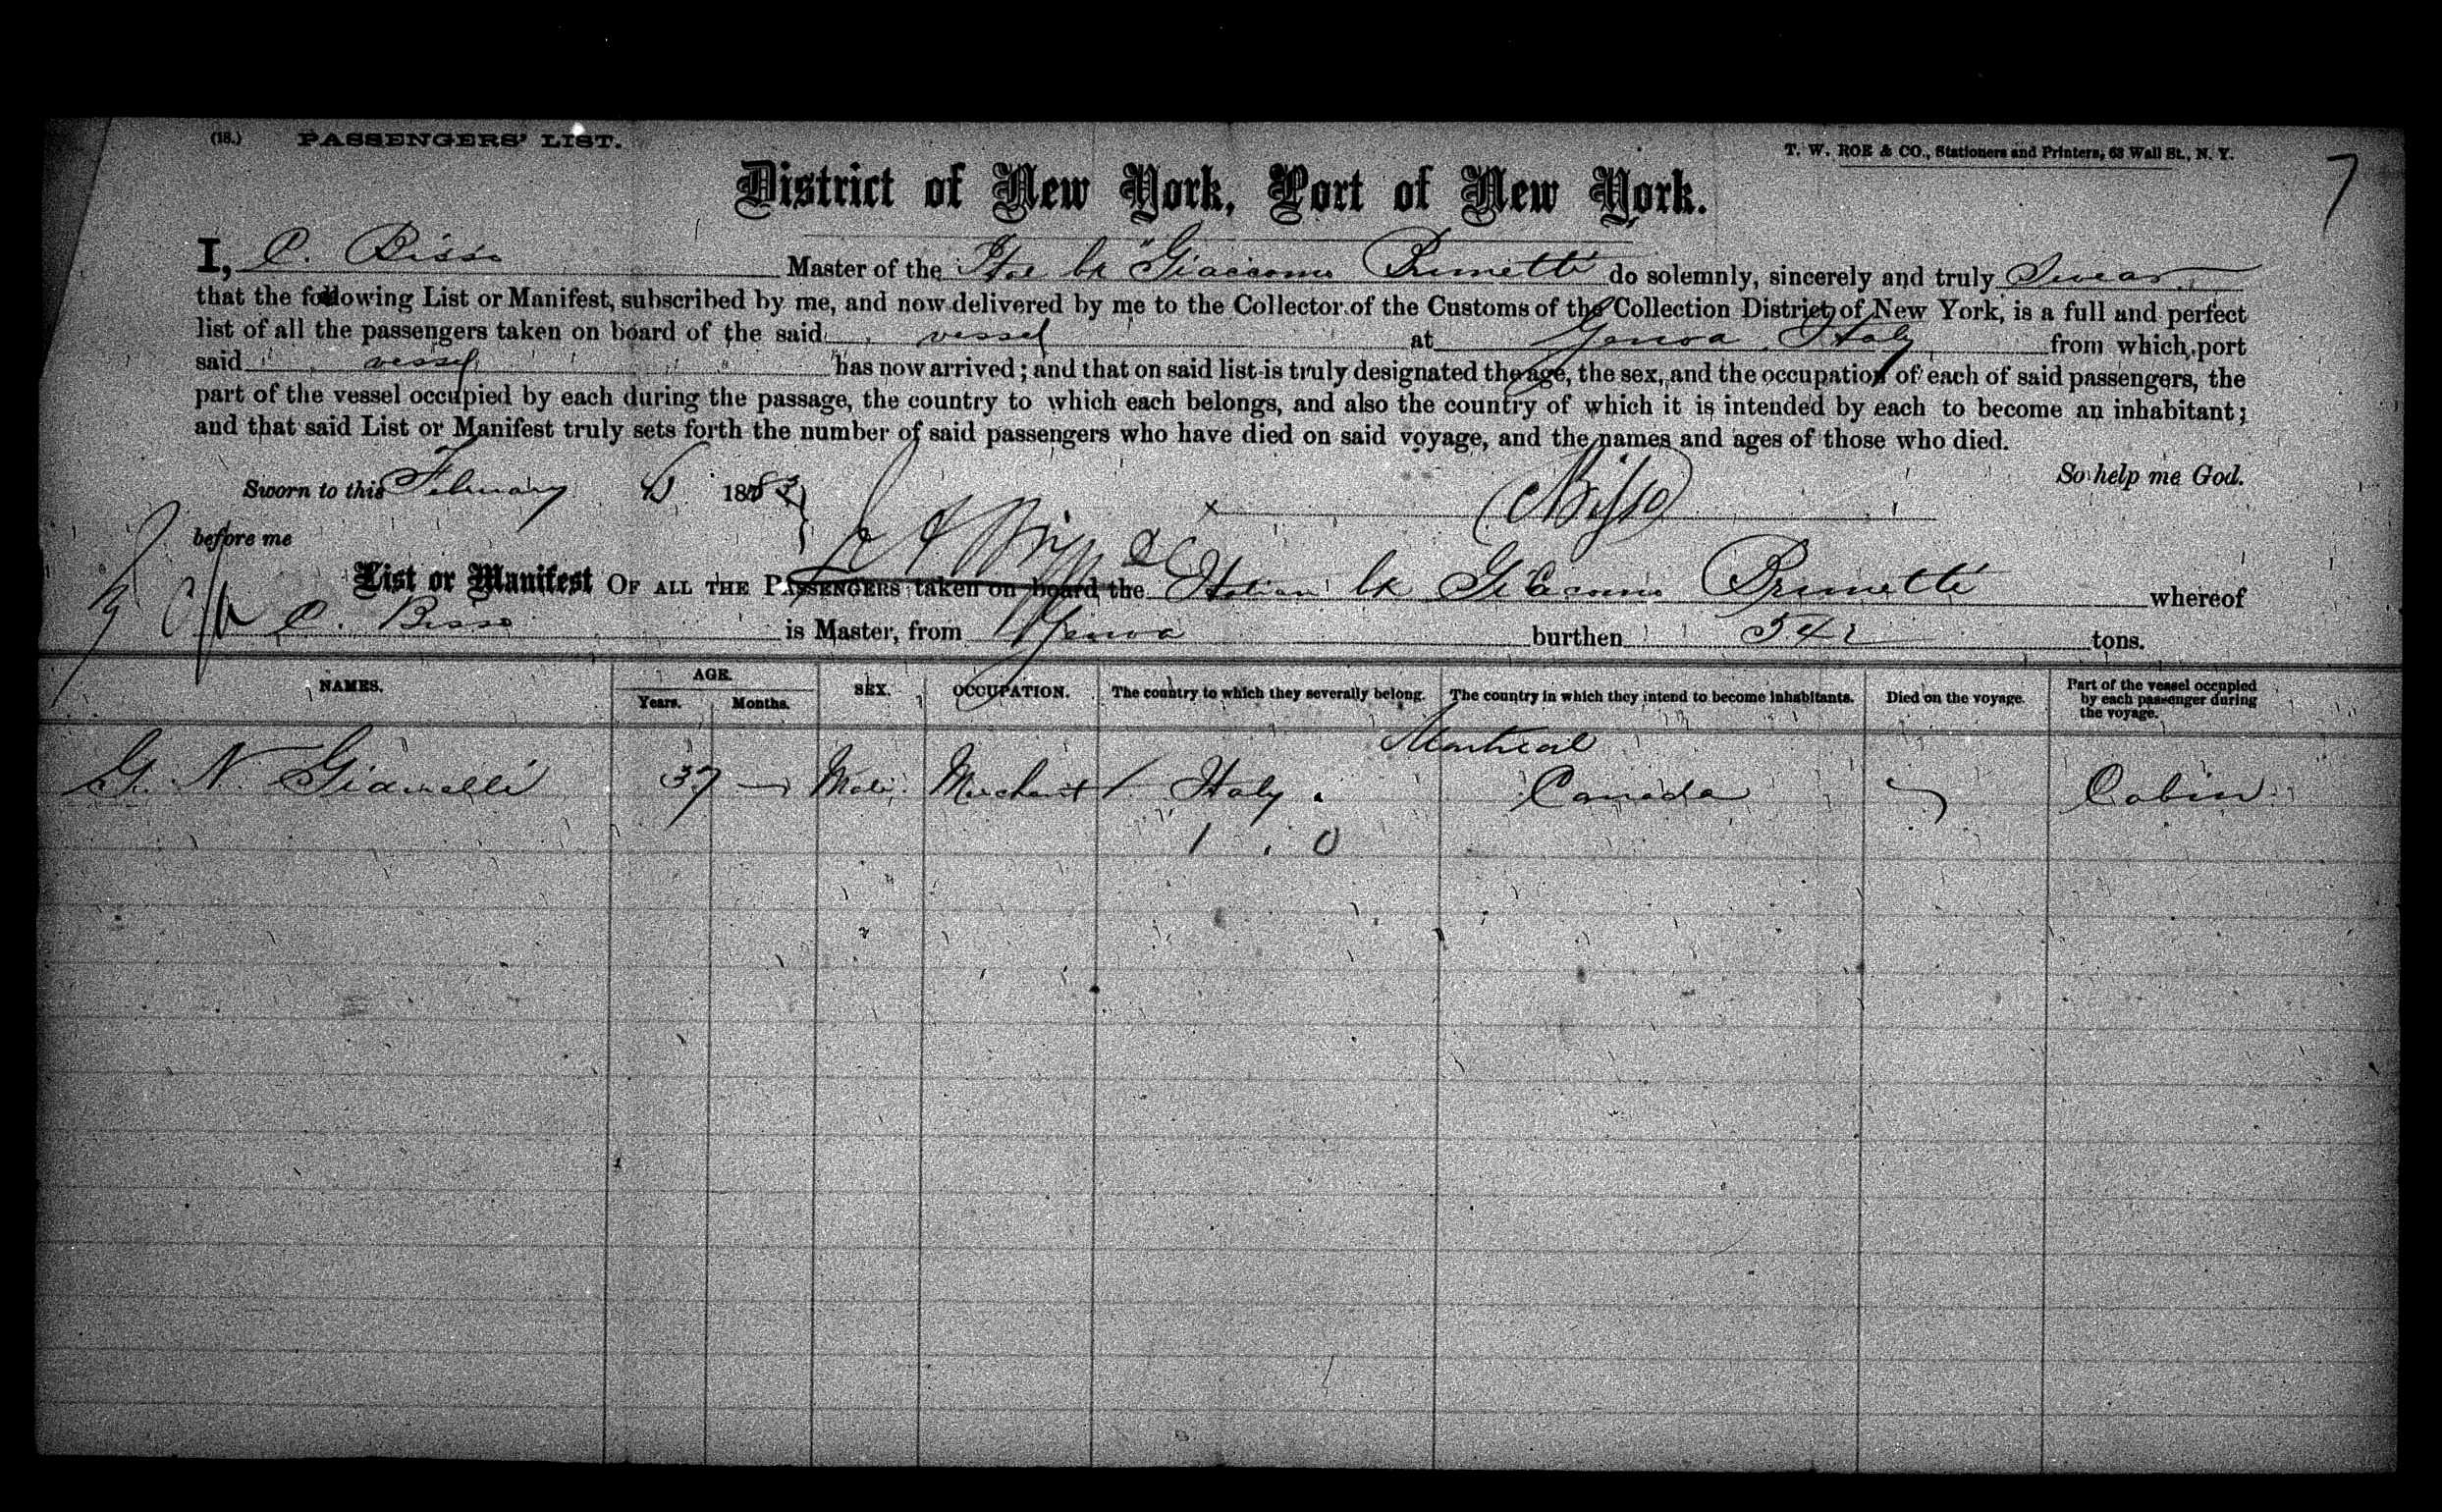 (18.) PASSENGERS' LIST.
T. W. ROE & CO., Stationers and Printers, 63 Wall St., N. Y.
7
District of New York, Port of New York.
I, C. Bisso Master of the Ital bk "Giaccomo Brunetti do solemnly, sincerely and truly Swear
that the following List or Manifest, subscribed by me, and now delivered by me to the Collector of the Customs of the Collection District of New York, is a full and perfect
list of all the passengers taken on board of the said vessel at Genoa, Italy from which port
said vessel has now arrived; and that on said list is truly designated the age, the sex, and the occupation of each of said passengers, the
part of the vessel occupied by each during the passage, the country to which each belongs, and also the country of which it is intended by each to become an inhabitant;
and that said List or Manifest truly sets forth the number of said passengers who have died on said voyage, and the names and ages of those who died.
So help me God.
Sworn to this February 6 1883
C Bisso
before me
List or Manifest OF ALL THE PASSENGERS taken on board the Italian bk Giacomo Brunetti whereof
C. Bisso is Master, from Genoa burthen 541 tons.
NAMES. AGE. Years. Months. SEX. OCCUPATION. The country to which they severally belong. The country in which they intend to become inhabitants. Died on the voyage. Part of the vessel occupied by each passenger during the voyage.
Montreal
G. N. Gianelli 37 — Male Merchant / Italy Canada Cabin
1 . 0